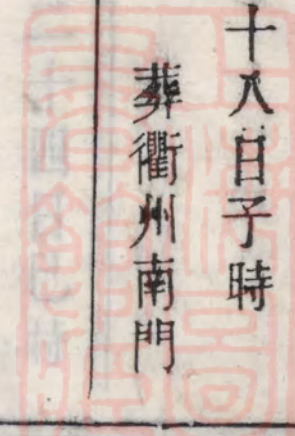 十八日子時
葬衢州南門